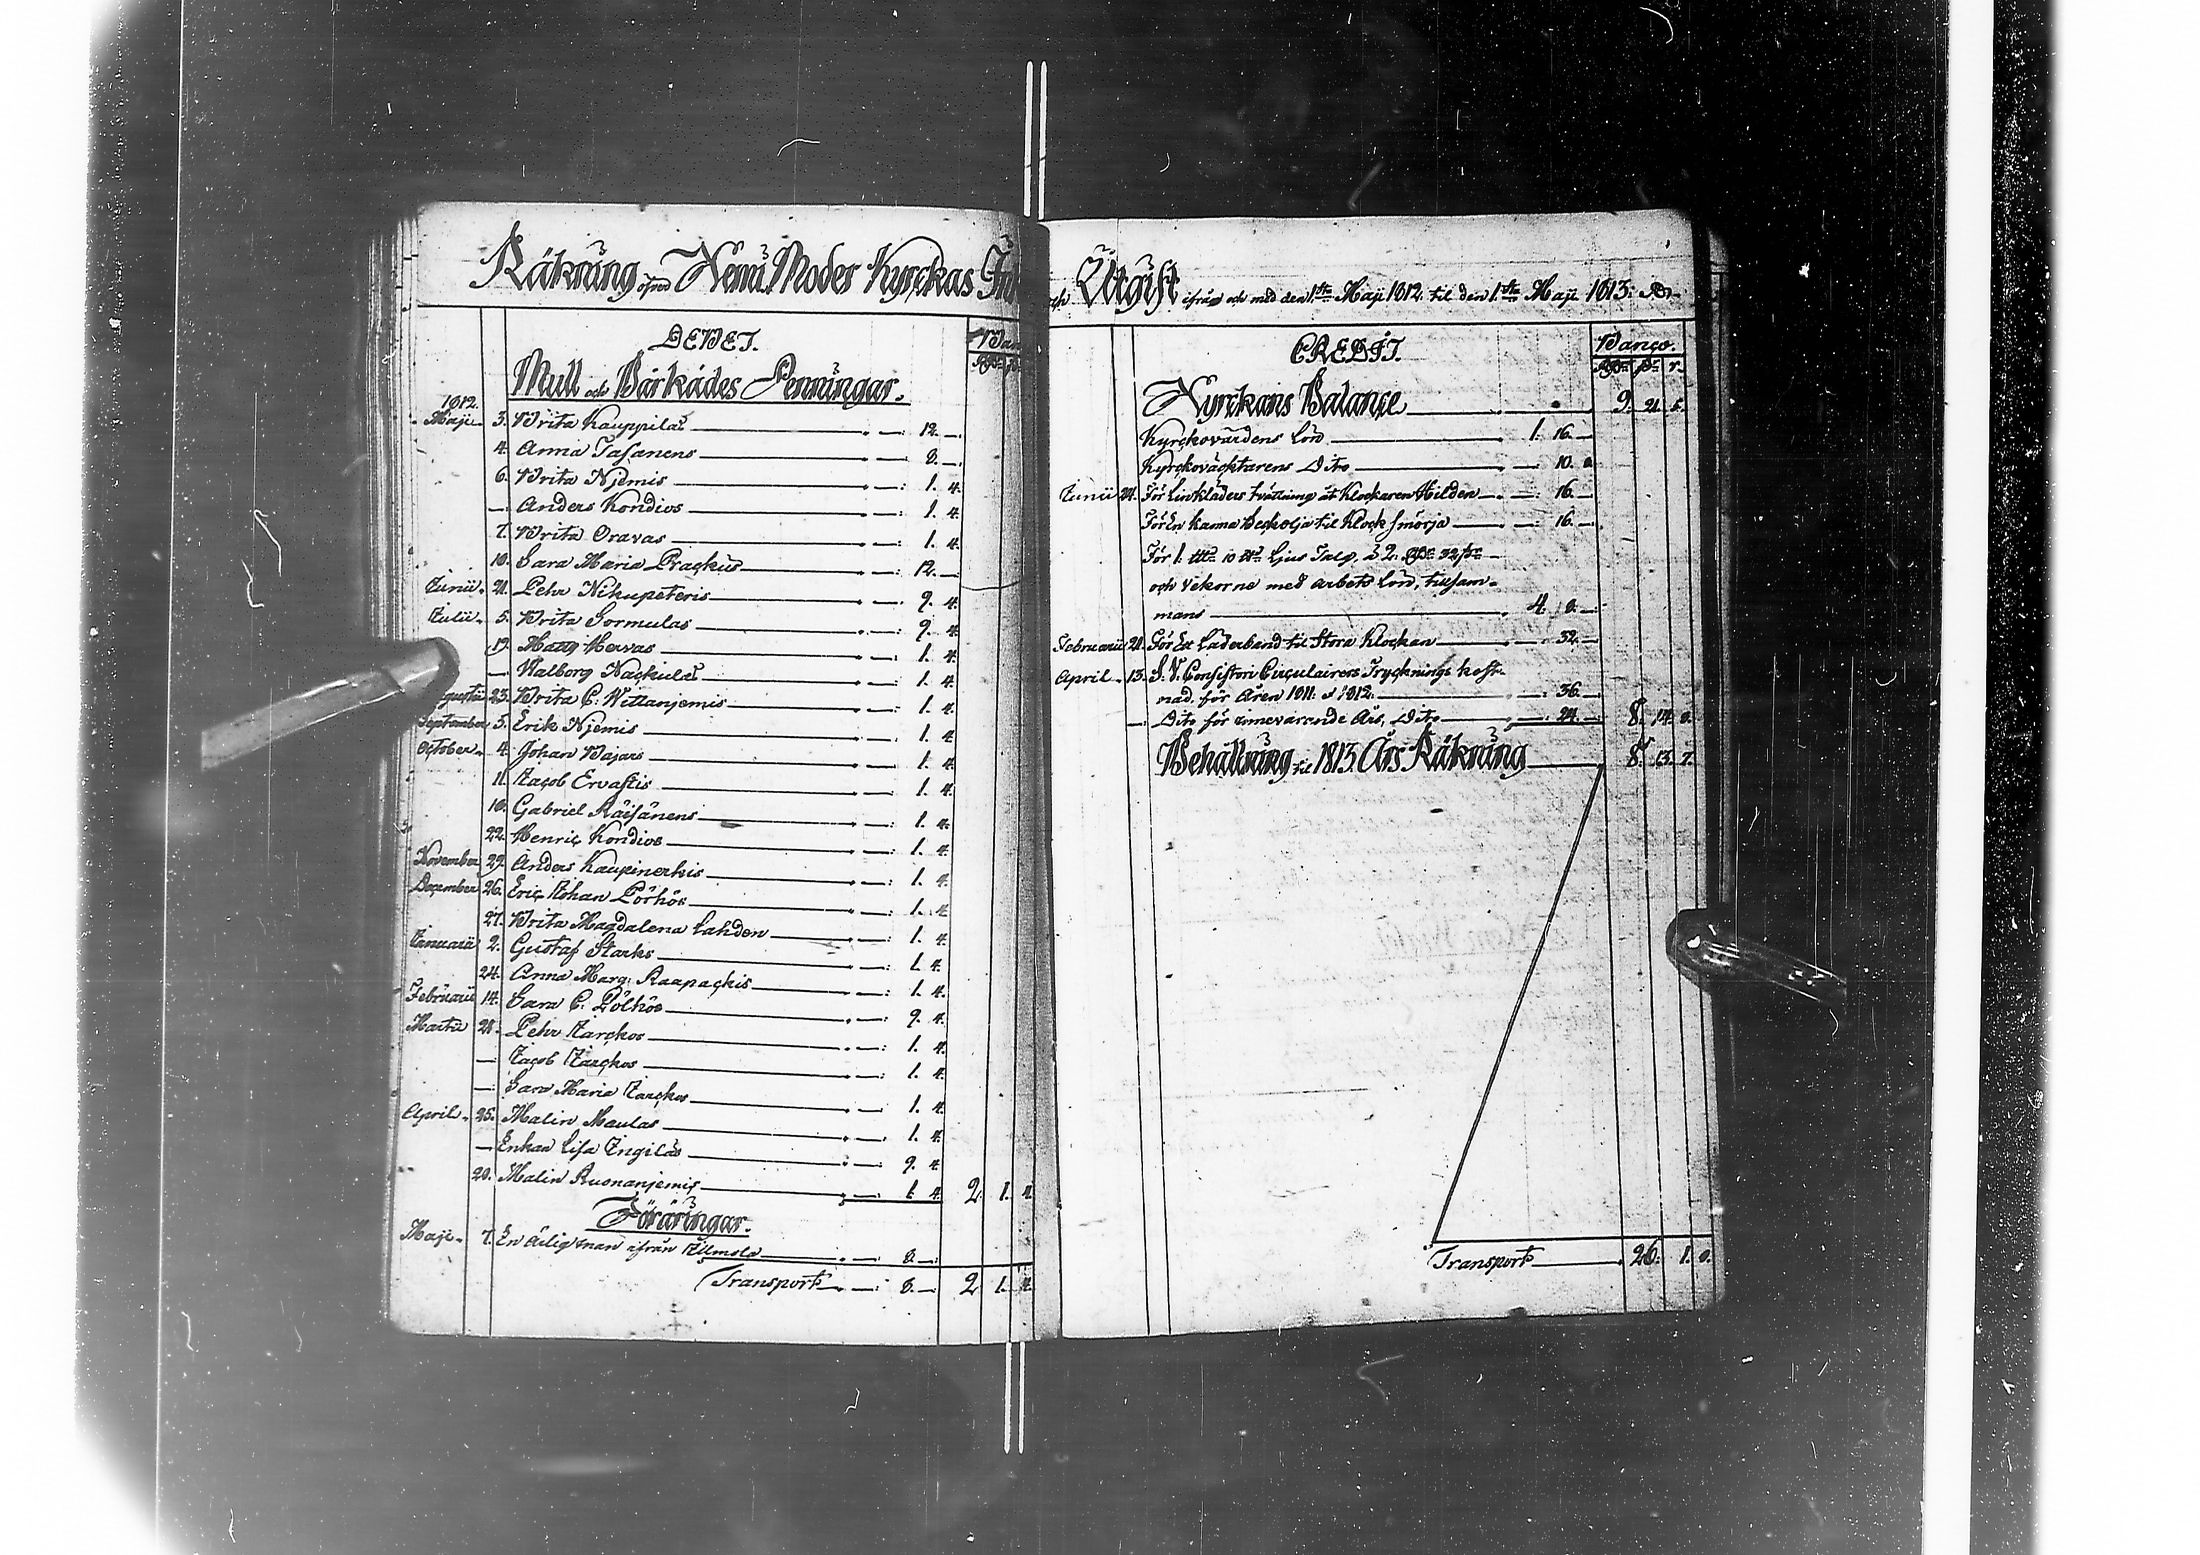 Räkning öfver Kemi Moder Kyrckas In
DEBET. Ban
Mull och Bårkädes Penningar.
1812.
Maji. 3. Brita Kauppilas 12. —
4. Anna Tasanens 8. —
6. Brita Njemis 1. 4.
— Anders Kondios 1. 4.
7. Brita Oravas 1. 4.
10. Sara Maria Prackus 12. —
Junii. 21. Pehr Nikupeteris 9. 4.
Julii. 5. Brita Sormulas 9. 4.
19. Matts Hervas 1. 4.
— Walborg Nackulas 1. 4.
gustii 23. Brita C. Wittanjemis 1. 4.
September 5. Erik Njemis 1. 4.
October. 4. Johan Wajars 1. 4.
11. Jacob Ervastis 1. 4.
18. Gabriel Räisänens 1. 4.
22. Henric Kondios 1. 4.
November 29. Anders Kaupinerkis 1. 4.
December 26. Eric Johan Pörhös 1. 4.
27. Brita Magdalena Lahden 1. 4.
Januarii 2. Gustaf Starks 1. 4.
24. Anna Marg. Raapackis 1. 4.
Februarii 14. Sara C. Pölhös 9. 4.
Martii 21. Pehr Jarckos 1. 4.
— Jacob Jarckos 1. 4.
— Sara Maria Jarckos 1. 4.
April. 25. Malin Maulas 1. 4.
— Enkan Lisa Ingilas 9. 4.
28. Malin Ruonanjemis 1. 4. 2. 1. 4.
Föräringar.
Maji. 7. En ärlig man ifrån 8. —
Transport 8. — 2 1. 4.
och Utgift ifrån och med den 1sta Maji 1812. til den 1sta Maji 1813.
CREDIT. Banco.
Kyrckans Balance 9. 21. 5.
Kyrckovärdens Lön 1. 16. —
Kyrckoväcktarens Dito 10. 8.
Junii 24. För Linkläders tvättning åt Klockaren Hilden 16. —
För En kanna Beckolja til Klock smörja 16. —
För 1. 10 Ljus Talg, à 2. 32
och Vekorne med arbets Lön, tillsam-
mans 4. 8. —
Februarii 21. För Ett Läderband til Stora Klockan 32. —
April. 13. S. V. Consistori Circulairers Trycknings kost-
nad för Åren 1811. & 1812. 36. —
— Dito för innevarande Års, Dito 24. — 8. 14. 8.
Behållning til 1813. Års Räkning 8. 13. 7.
Transport 26. 1. 8.